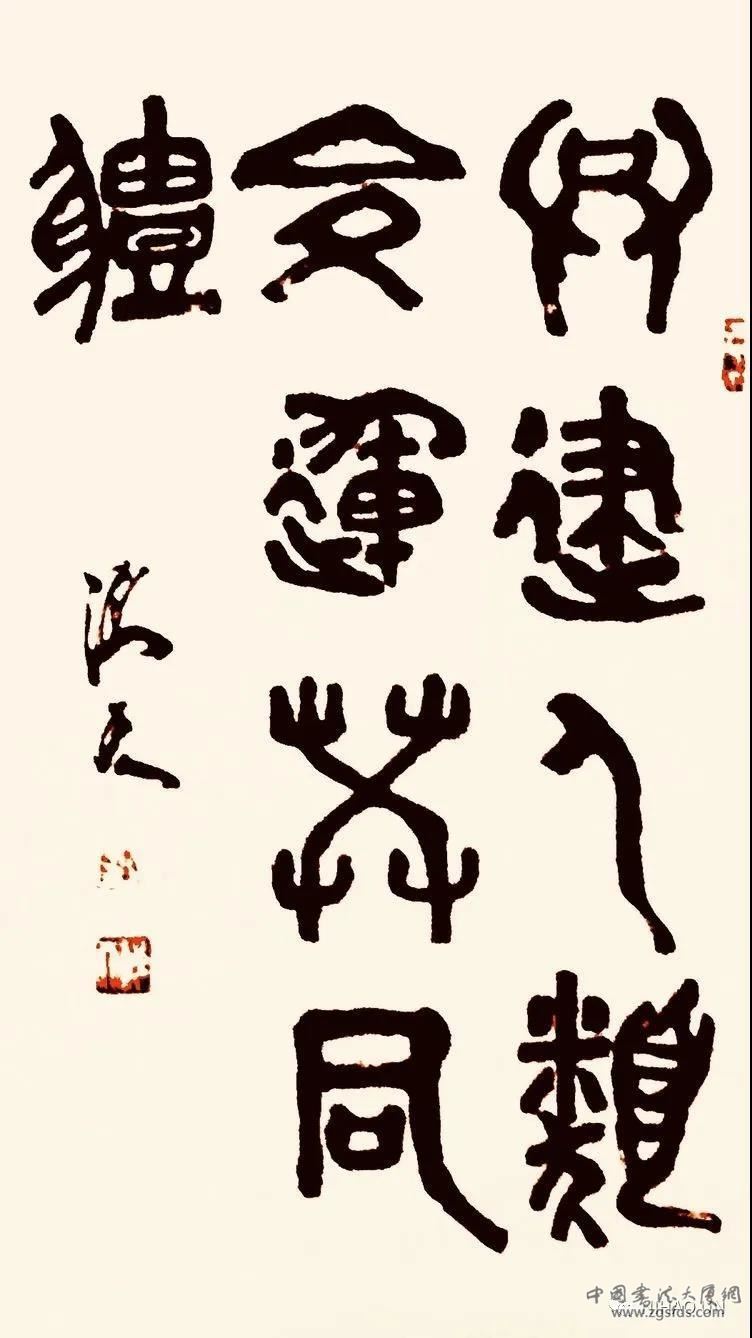 共建人類
命運共同
體
中國書法大厦網
www.zgsfds.com